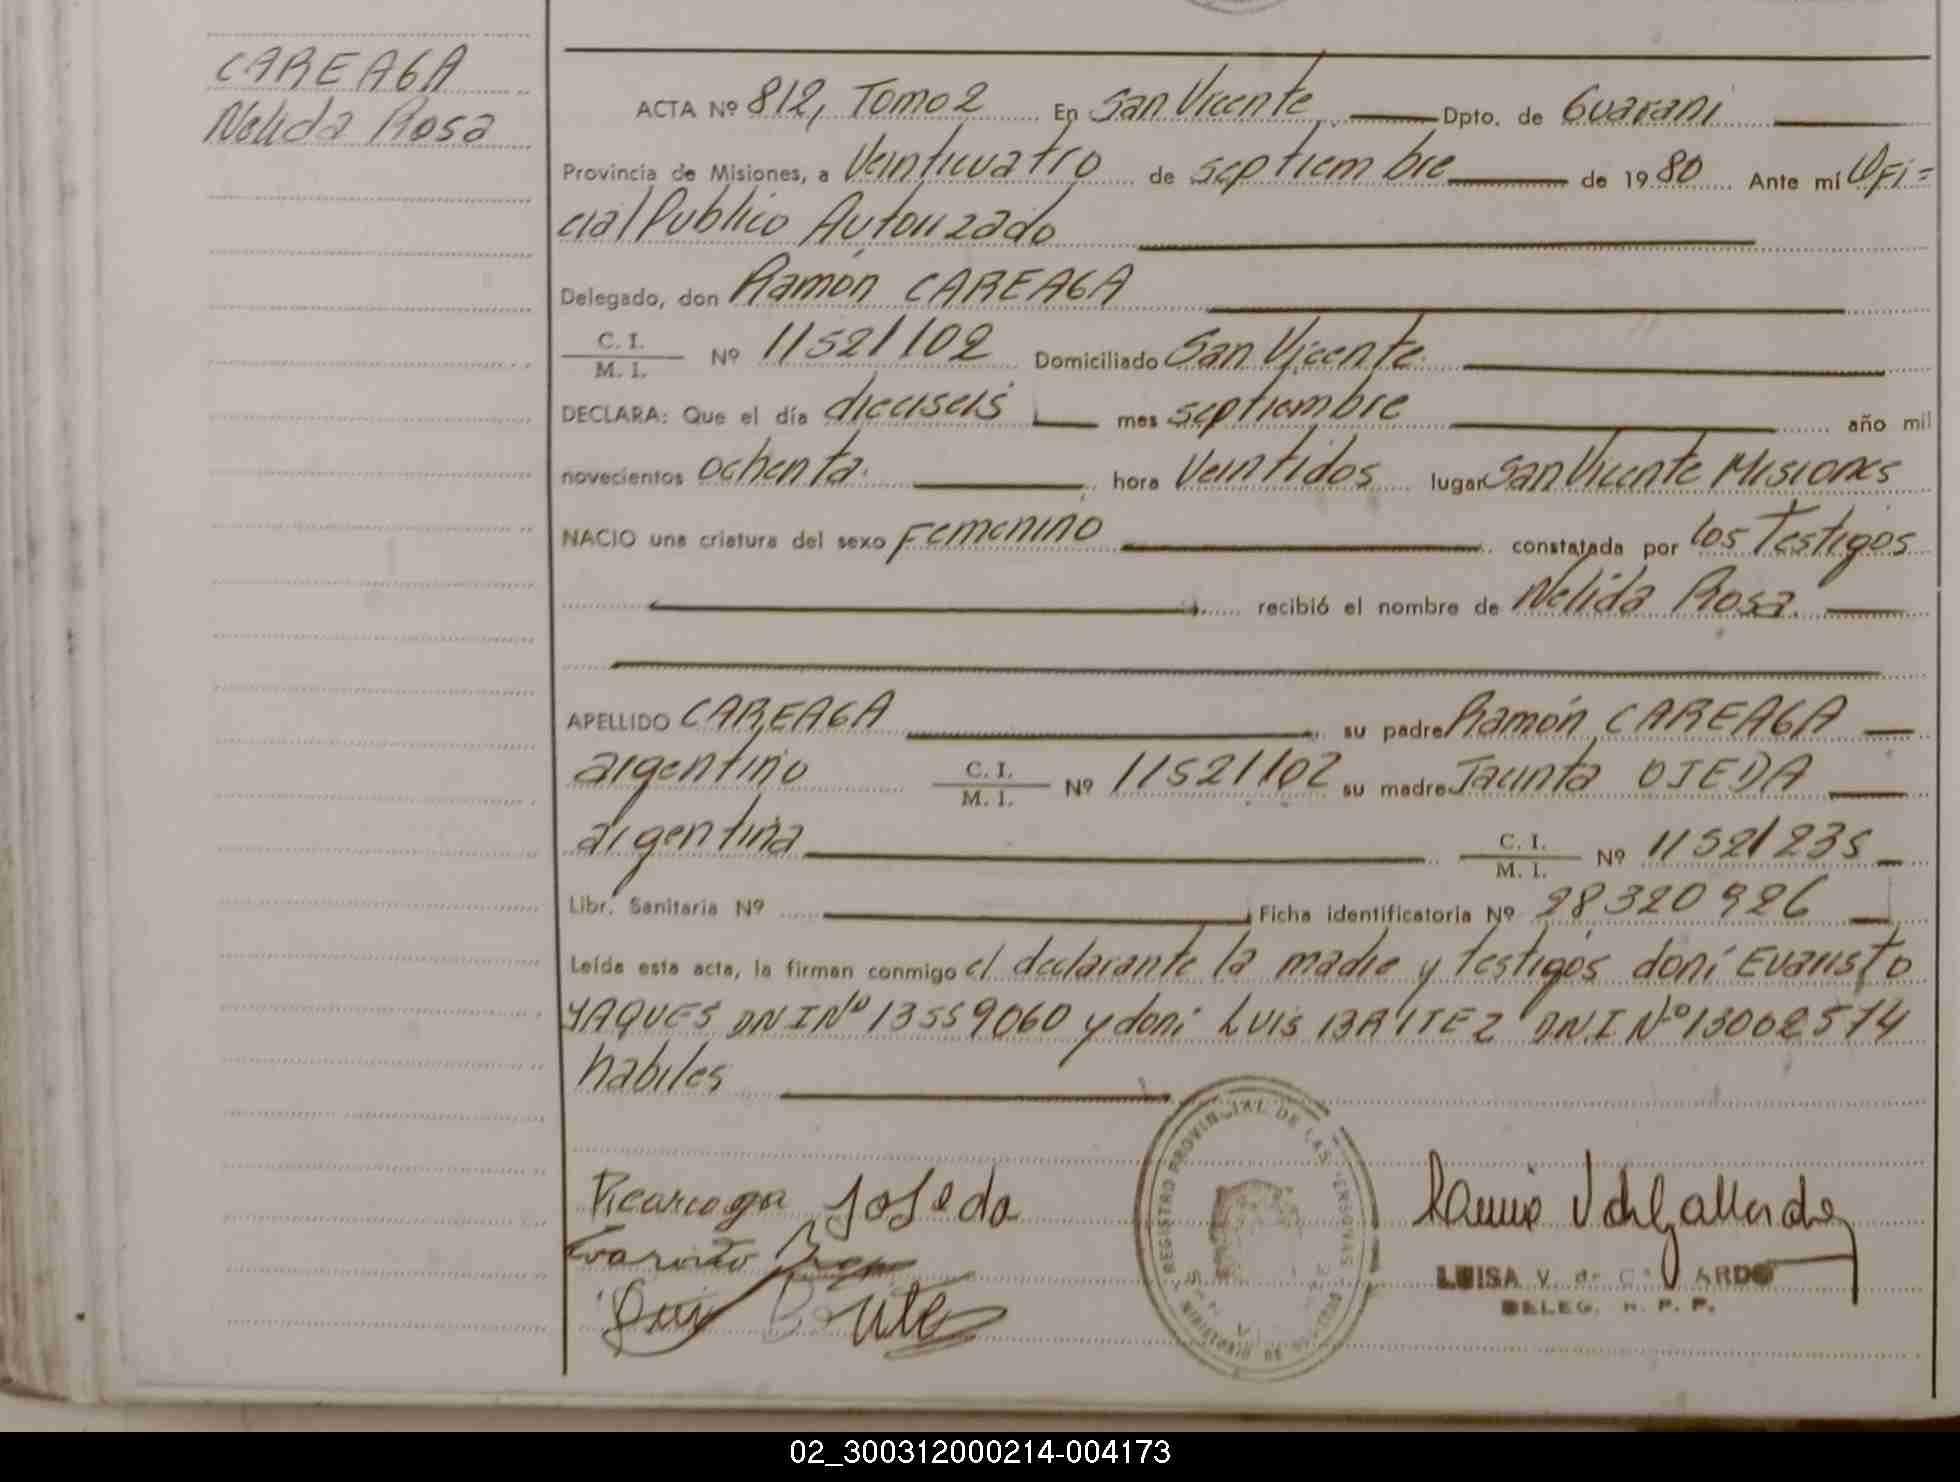 CAREAGA
Nelida Rosa
ACTA Nº 812, Tomo 2 En San Vicente Dpto. de Guarani
Provincia de Misiones, a Veinticuatro de septiembre de 1980 Ante mí Ofi=
cial Publico Autorizado
Delegado, don Ramón CAREAGA
C. I.
M. I. Nº 11521102 Domiciliado San Vicente
DECLARA: Que el día dieciseis mes septiembre año mil
novecientos ochenta. hora Veintidos lugar San Vicente Misiones
NACIO una criatura del sexo Femenino constatada por los Testigos
recibió el nombre de Nelida Rosa.
APELLIDO CAREAGA su padre Ramón CAREAGA
argentino C. I.
M. I. Nº 11521102 su madre Jacinta OJEDA
argentina C. I.
M. I. Nº 11521235
Libr. Sanitaria Nº Ficha identificatoria Nº 28320926
Leída esta acta, la firman conmigo el declarante la madre y testigos don: Evaristo
YAQUES DNI Nº 13559060 y don: Luis BAITEZ DNI Nº 13002574
habiles
REGISTRO PROVINCIAL DE LAS PERSONAS
MINISTERIO DE
LUISA V. de ARDO
DELEG. R. P. P.
02_300312000214-004173